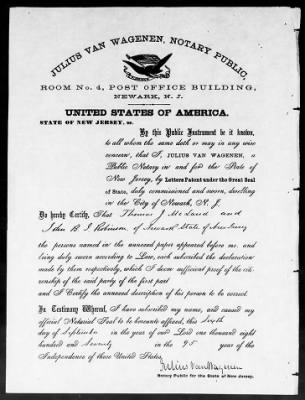 JULIUS VAN WAGENEN, NOTARY PUBLIC,
ROOM No. 4, POST OFFICE BUILDING,
NEWARK, N. J.
UNITED STATES OF AMERICA.
STATE OF NEW JERSEY, ss.
By this Public Instrument be it known,
to all whom the same doth or may in any wise
concern, that I, JULIUS VAN WAGENEN, a
Public Notary in and for the State of
New Jersey, by Letters Patent under the Great Seal
of State, duly commissioned and sworn, dwelling
in the City of Newark, N. J.
Do hereby Certify, That Thomas J. and
John B. I. Robinson of Newark State of New Jersey
the persons named in the annexed paper appeared before me, and
being duly sworn according to Law, each subscribed the declaration
made by them respectively, which I deem sufficient proof of the citi-
zenship of the said party of the first part
and I Certify the annexed description of his person to be correct.
In Testimony Whereof, I have subscribed my name, and caused my
official Notarial Seal to be hereunto affixed, this
day of September in the year of our Lord one thousand eight
hundred and Seventy in the 95 year of the
Independence of these United States.
Julius Van Wagenen
Notary Public for the State of New Jersey.